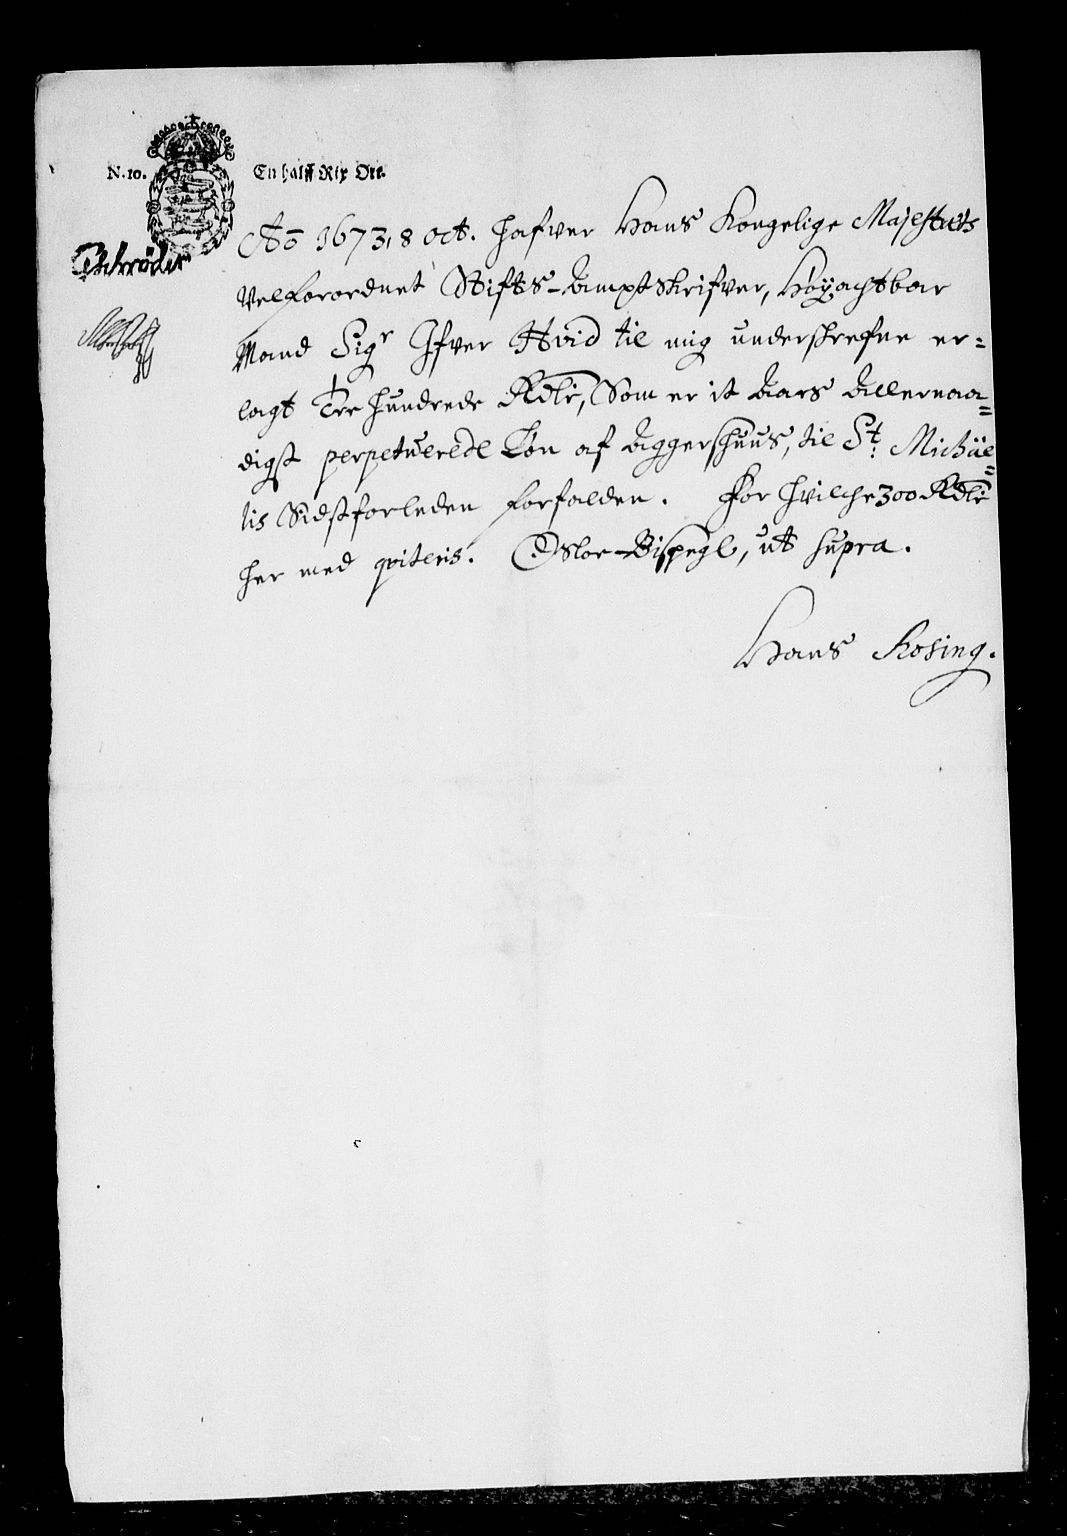 N. 10. En halff Rix Ort.
Ao 1673, 8 oct. hafver Hans Kongelige Majestæts
Velforordnet Stifts-Amptskrifver, Höÿachtbar
Mand Sigr Ifver Hvid til mig underskrefne er=
lagt Tre hundrede Rdlr, Som er it Aars Allernaa=
digst perpetuerede Lön af Aggershuus, til St: Michäe=
lis Sidstforleden forfalden. For hvilche 300 Rdlr
her med qviteris. Osloe-Bispegl, ut supra.
Hans Rosing.
Schrøder